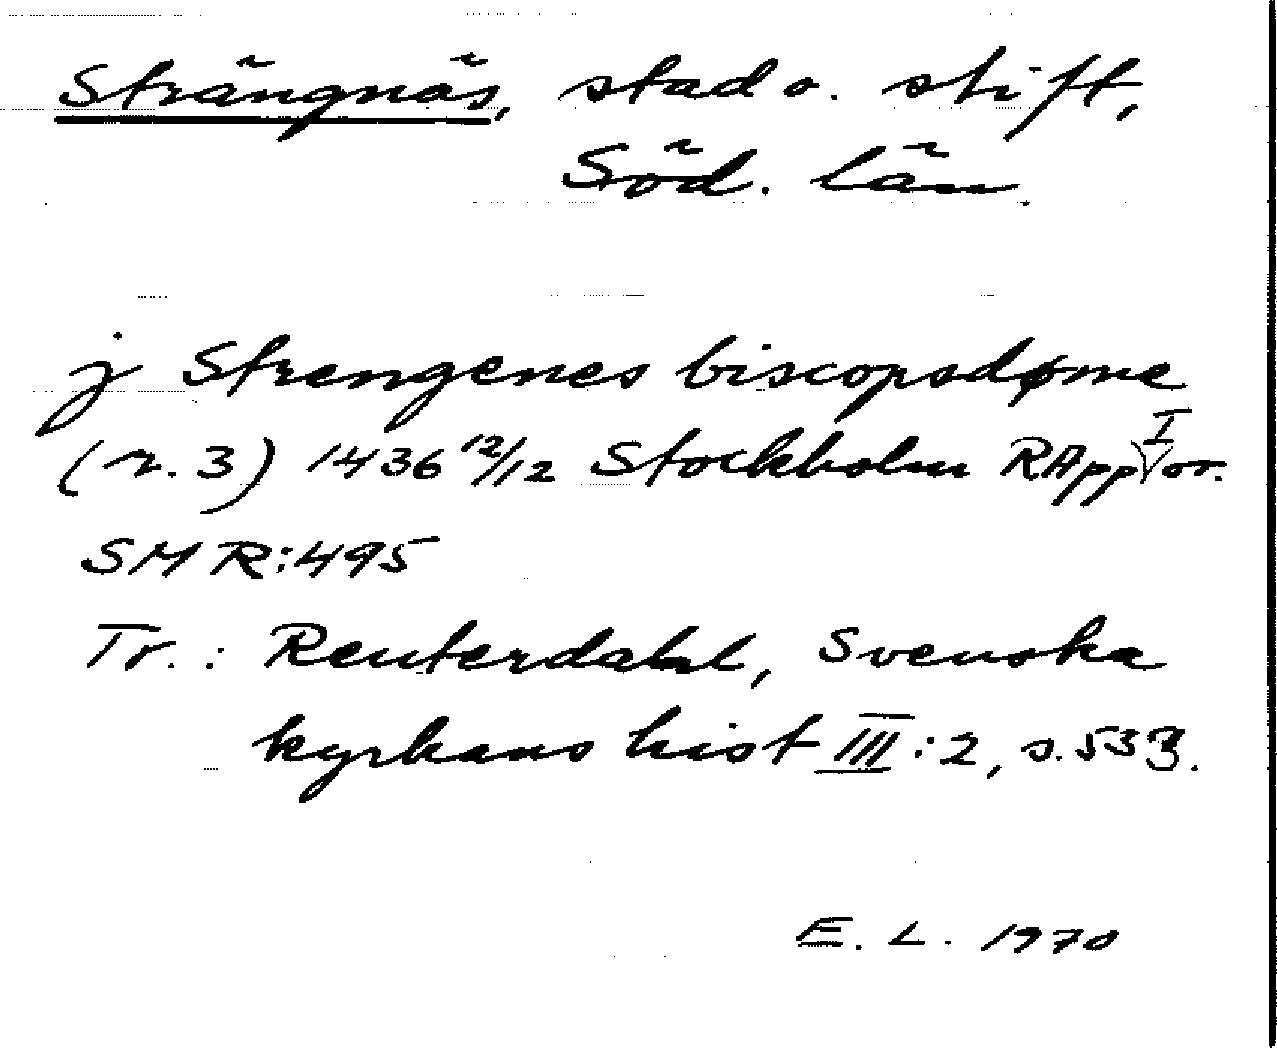 Strängnäs, stad o. stift,
Söd. län.
j Strengenes biscopsdøme
(r. 3) 1436 12/12 Stockholm RApp I or.
SMR:495
Tr.: Reuterdahl, Svenska
kyrkans hist III:2, s. 533.
E. L. 1970